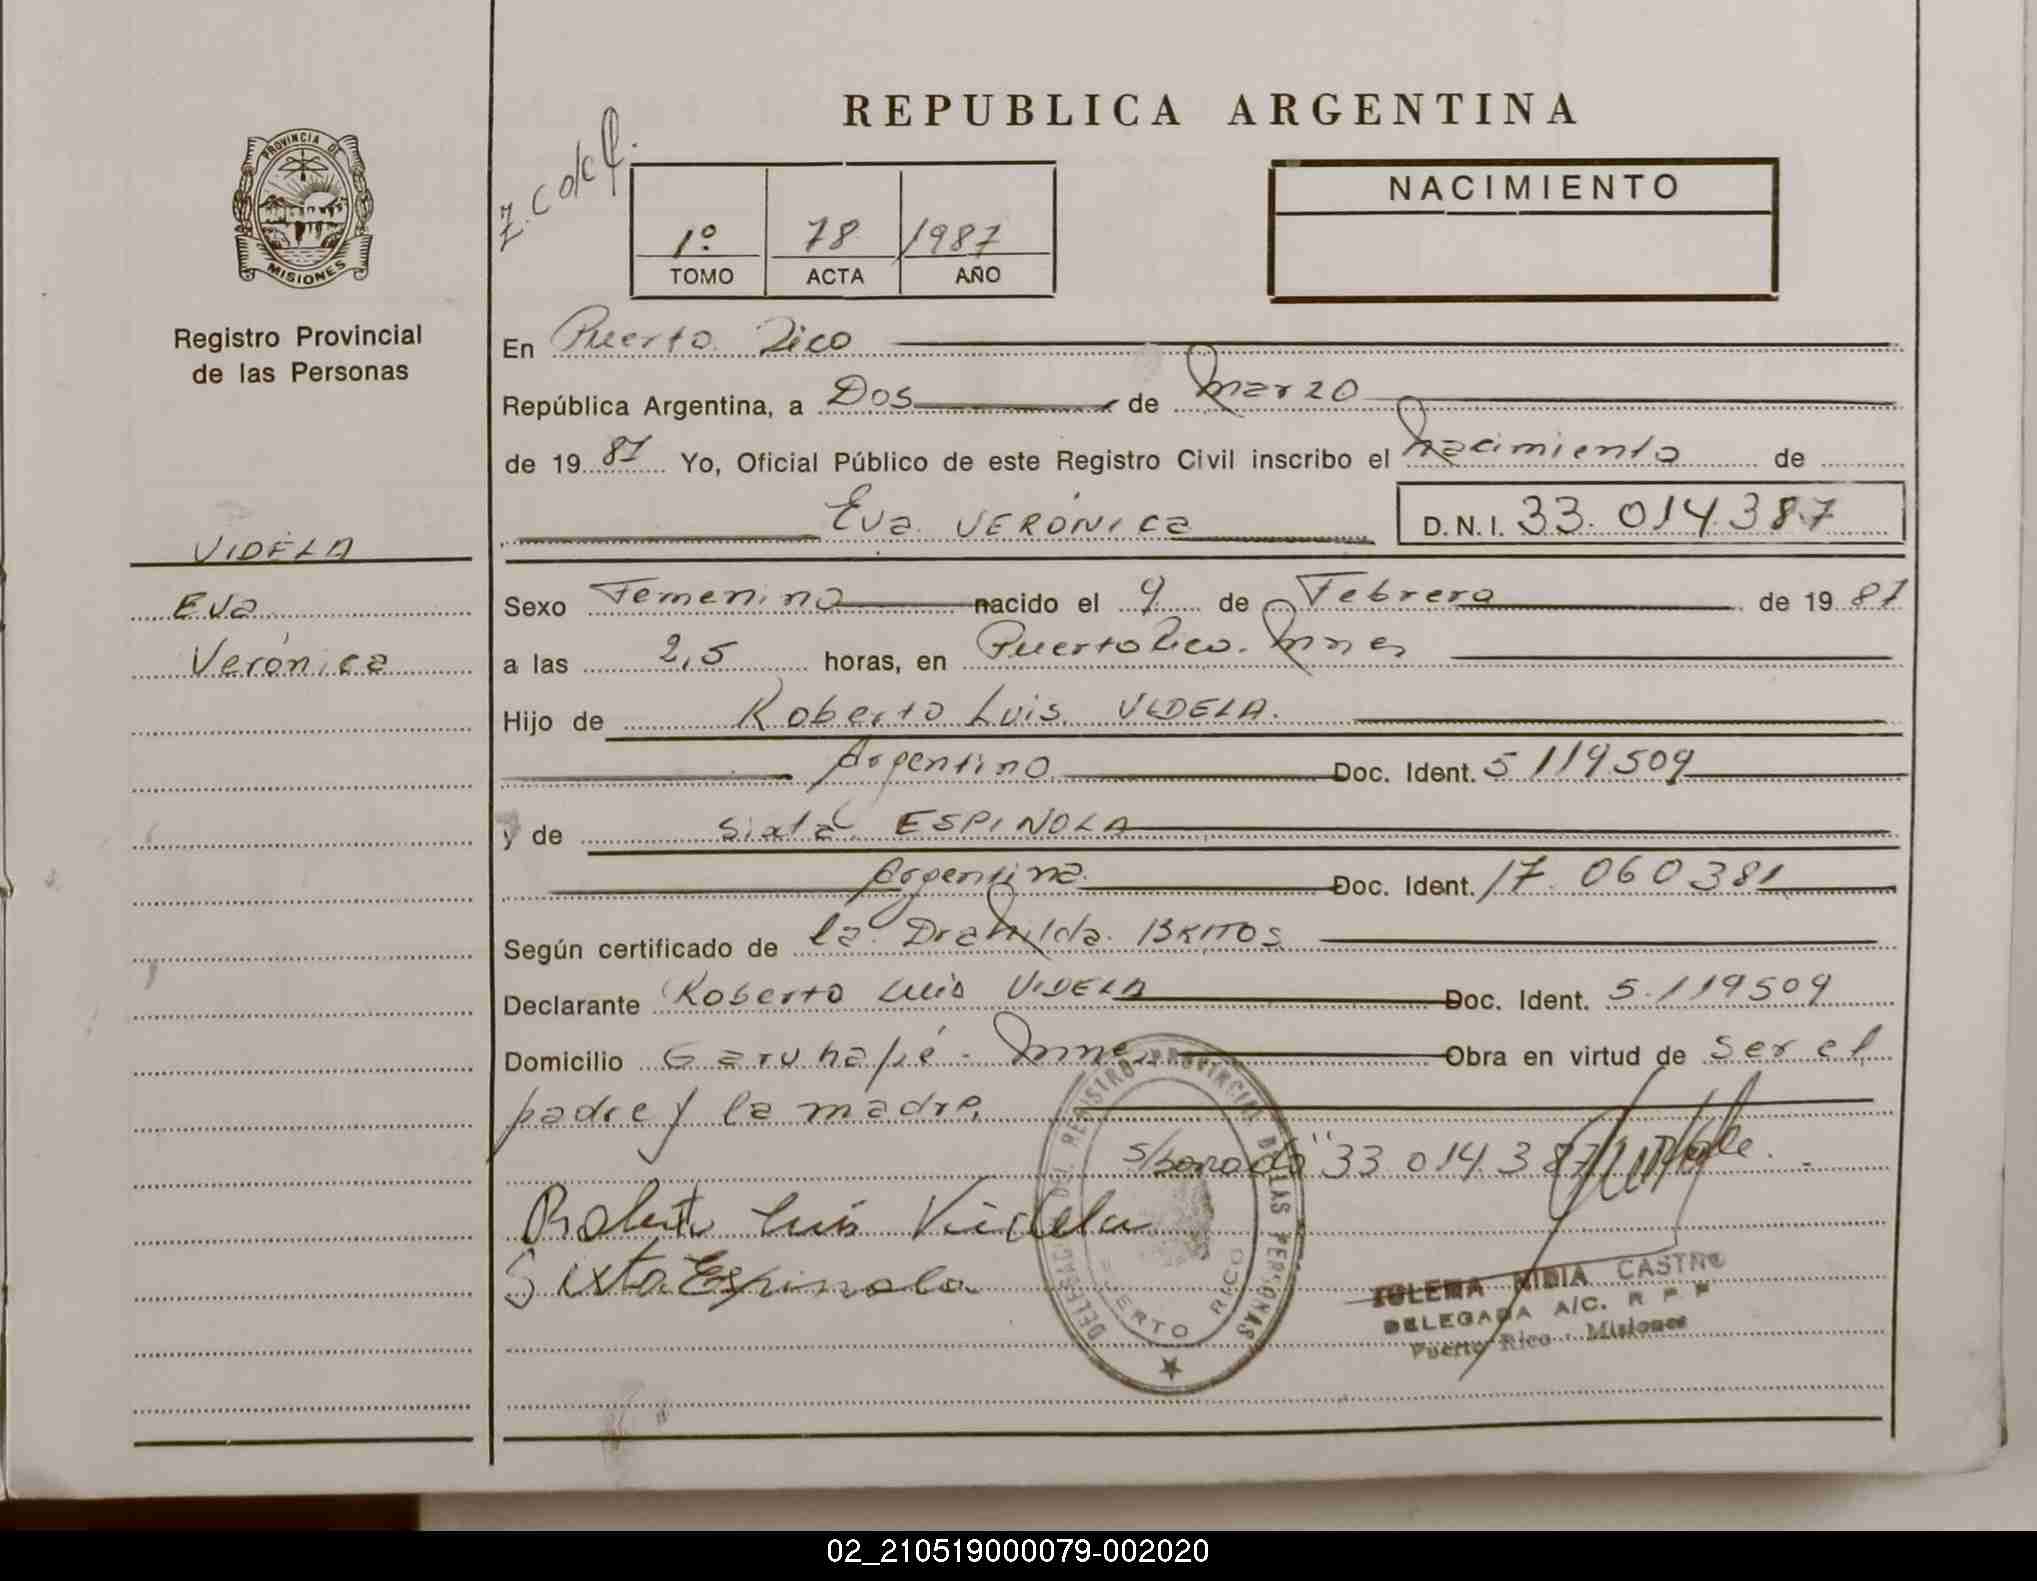 REPUBLICA ARGENTINA
PROVINCIA DE
MISIONES
Registro Provincial
de las Personas
1º 78 1987
TOMO ACTA AÑO
NACIMIENTO
En Puerto Rico
República Argentina, a Dos de marzo
de 19 87 Yo, Oficial Público de este Registro Civil inscribo el nacimiento de
Eva VERÓNICA D.N.I. 33.014.387
VIDELA
Eva
Verónica
Sexo Femenino nacido el 9 de Febrero de 19 87
a las 2,5 horas, en Puerto Rico. Mnes
Hijo de Roberto Luis VIDELA.
Argentino Doc. Ident. 5 119 509
y de Sixta ESPINOLA
Argentina Doc. Ident. 17 060 381
Según certificado de la Dra Nilda BRITOS
Declarante Roberto Luis VIDELA Doc. Ident. 5.119509
Domicilio Garuhapé - Mnes Obra en virtud de ser el
padre y la madre.
s/borrado "33 014 387"
Roberto Luis Videla
Sixta Espinola
DELEGACION REGISTRO PROVINCIAL DE LAS PERSONAS
PUERTO RICO
ZULEMA NIDIA CASTRO
DELEGADA A/C. R P P
Puerto Rico - Misiones
02_210519000079-002020